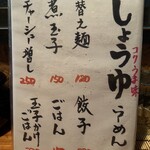 コクうま味
しょうゆ
らーめん
替え麺
150
煮玉子
120
チャーシュー増し
250
餃子
ごはん
玉子かけ
ごはん